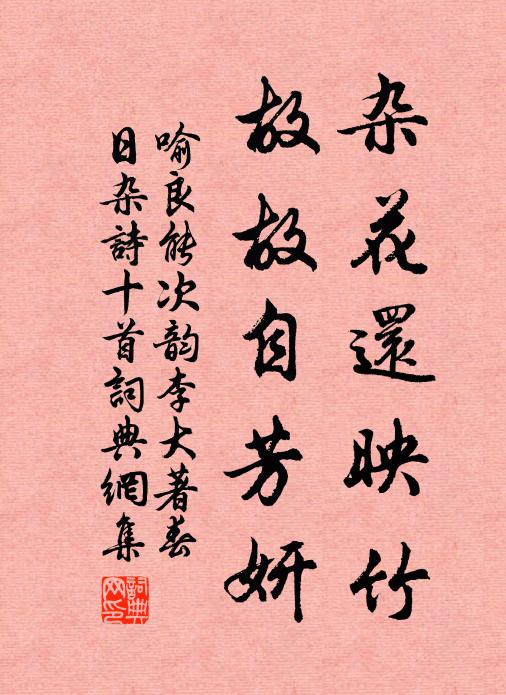 杂花還映竹
故故自芳妍
喻良能次韵李大著春
日杂詩十首詞典網集
詞典网印